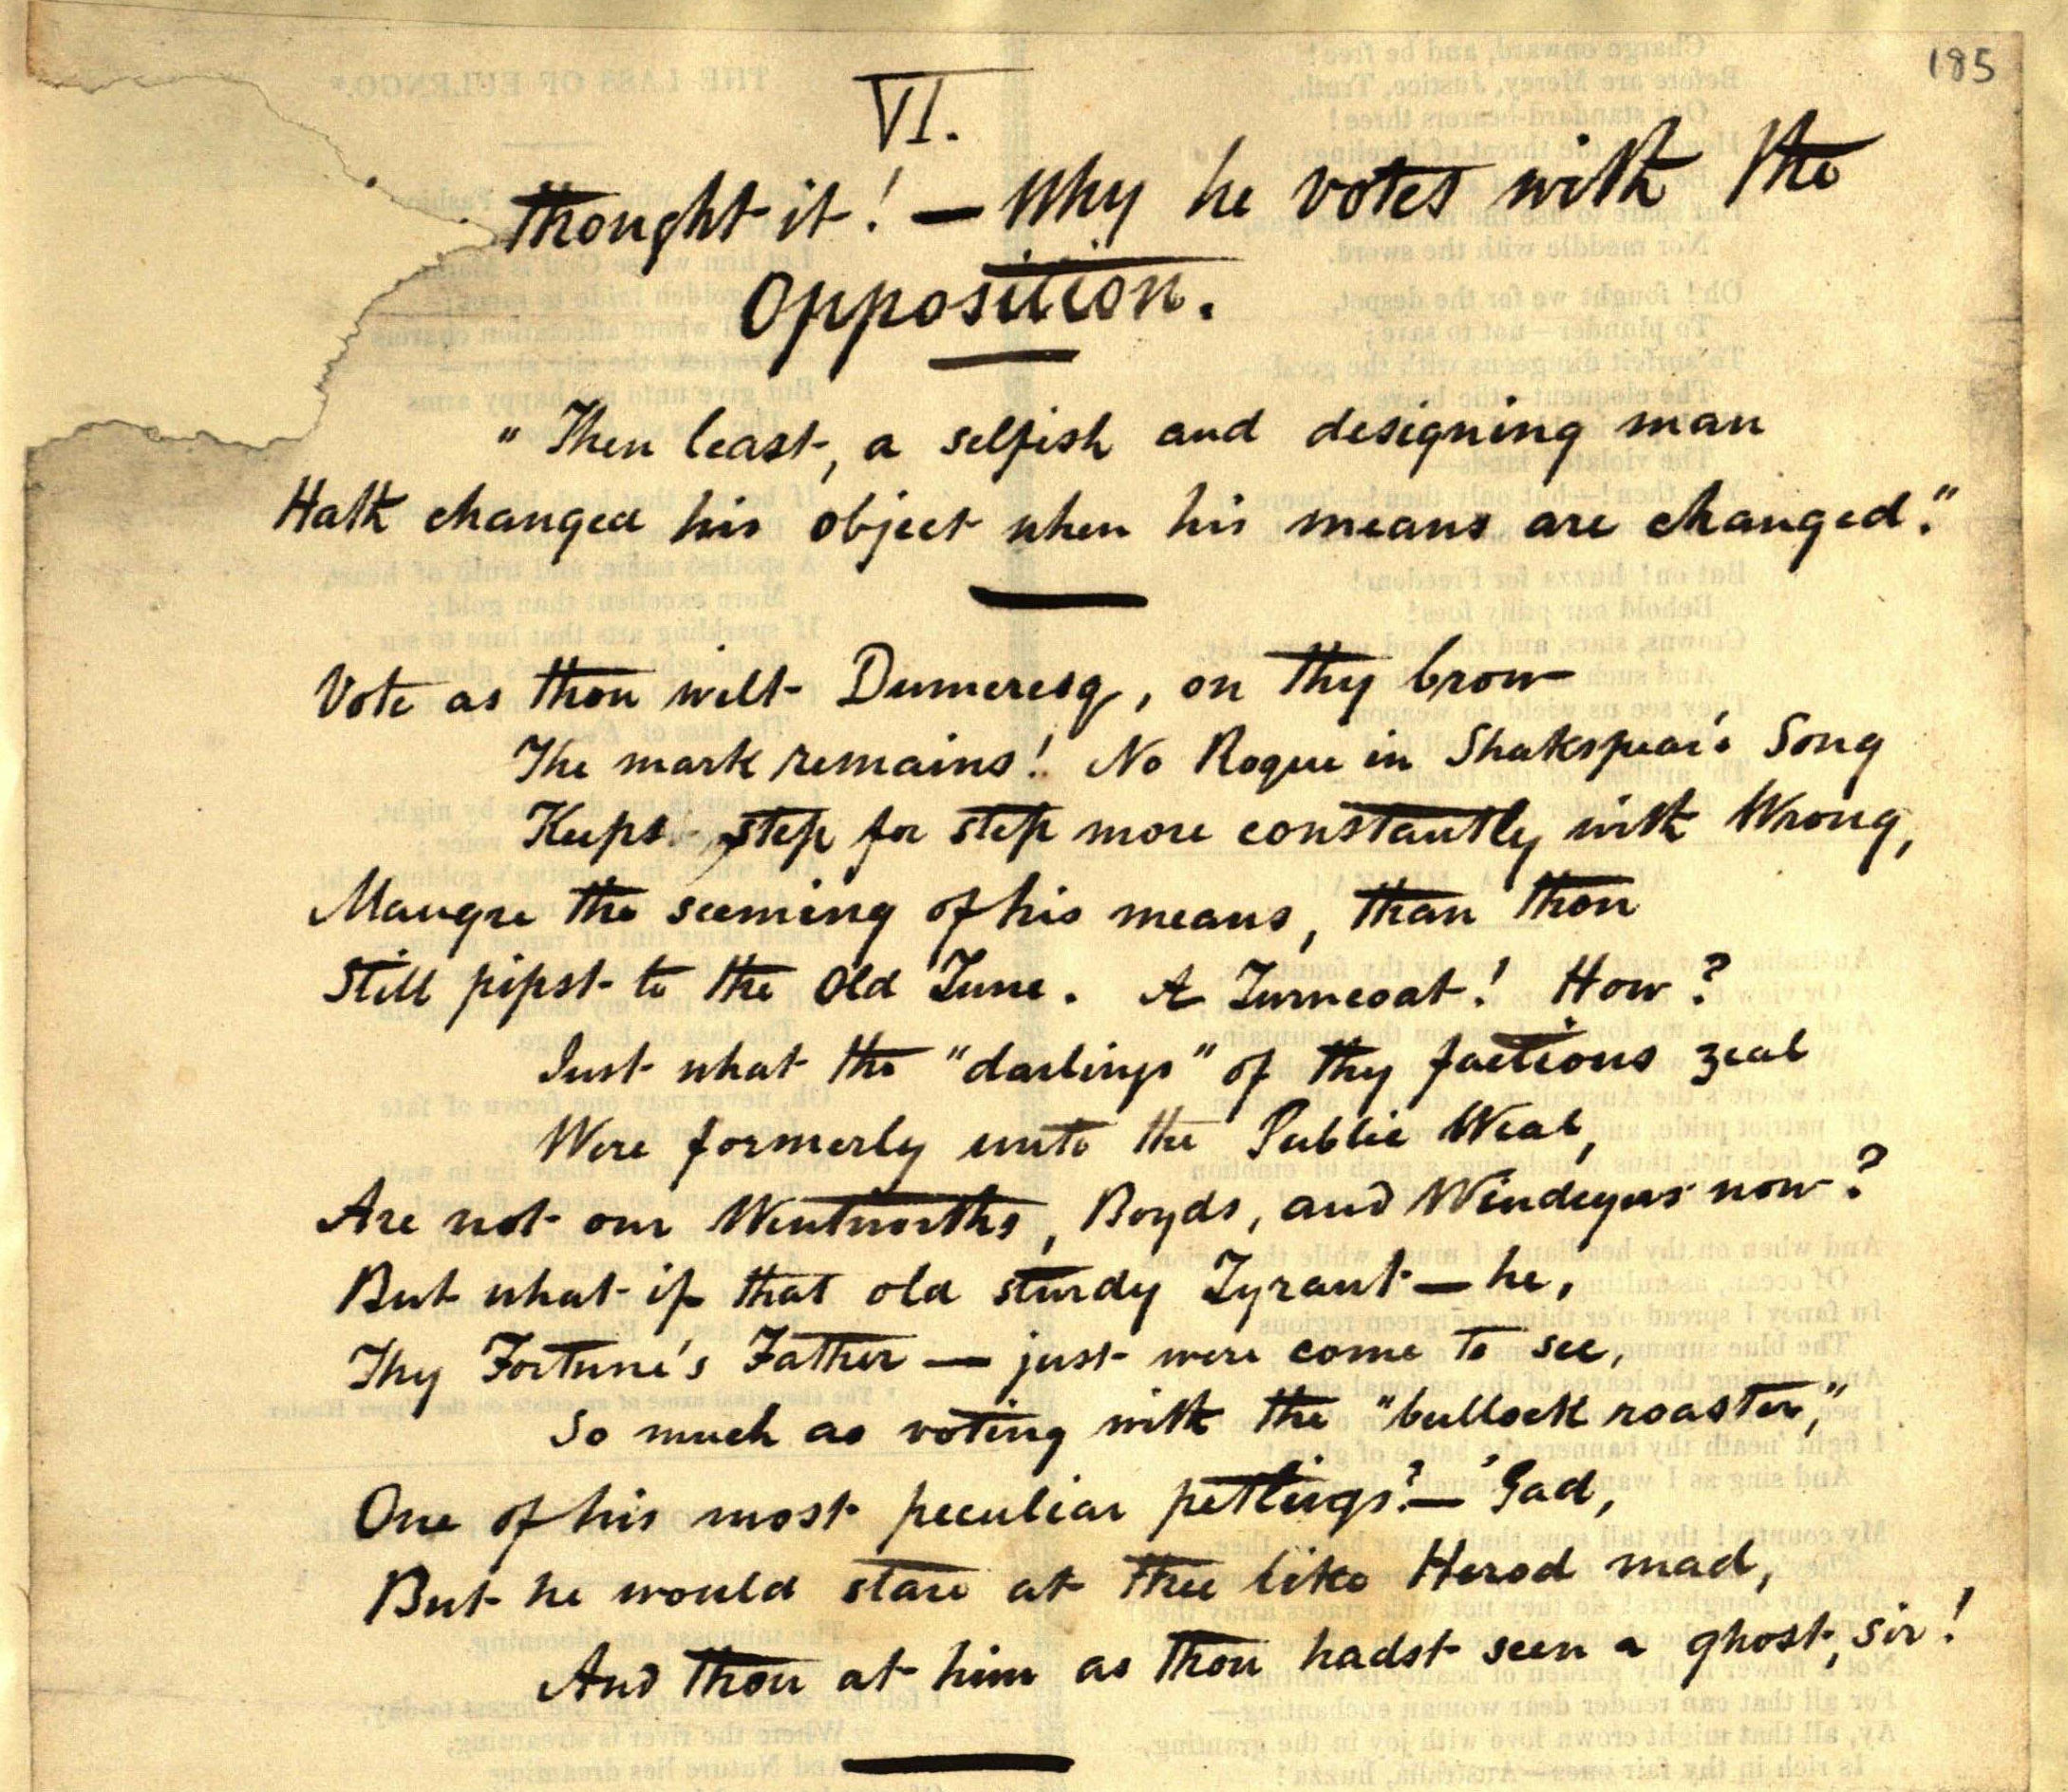 185
VI.
thought it! — Why he votes with the
Opposition.
"Then least, a selfish and designing man
Hath changed his object when his means are changed."
Vote as thou wilt Dumeresq, on thy brow
The mark remains! No Rogue in Shakspear's Song
Keeps step for step more constantly with Wrong,
Maugre the seeming of his means, than thou
Still pipst to the Old Tune. A Turncoat! How?
Just what the "darlings" of thy factious zeal
Were formerly unto the Public Weal,
Are not our Wentworths, Boyds, and Windeyers now?
But what if that old sturdy Tyrant — he,
Thy Fortune's Father — just were come to see,
So much as voting with the "bullock roaster,"
One of his most peculiar petlings? — 'Gad,
But he would stare at thee like Herod mad,
And thou at him as thou hadst seen a ghost, sir!